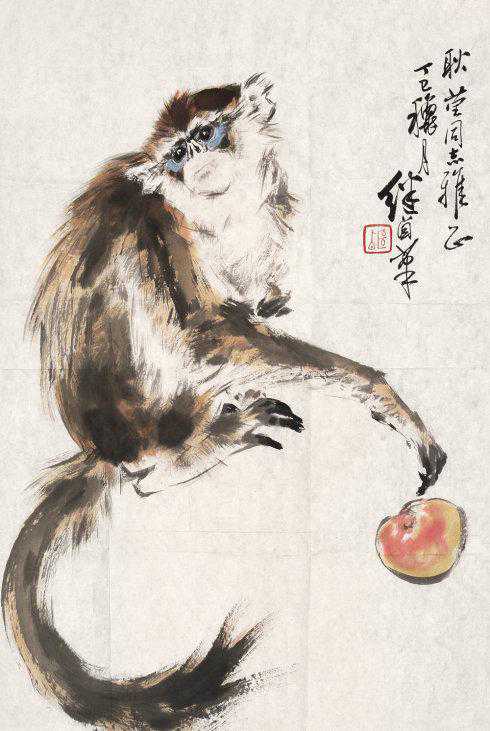 耿莹同志雅正
丁巳穐月
继卣笔